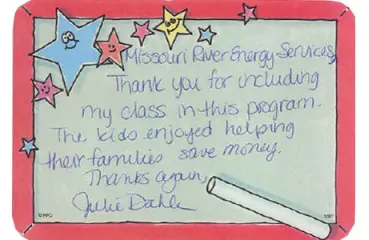 Missouri River Energy Services,
Thank you for including
my class in this program.
The kids enjoyed helping
their families save money.
Thanks again,
Julie Dahle